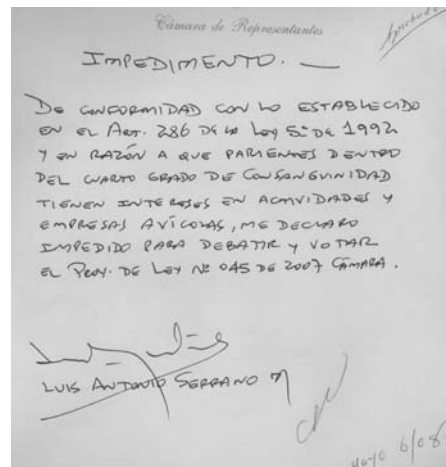 Cámara de Representantes
Aprobado
IMPEDIMENTO. —
DE CONFORMIDAD CON LO ESTABLECIDO
EN EL ART. 286 DE LA LEY 5ª DE 1992
Y EN RAZÓN A QUE PARIENTES DENTRO
DEL CUARTO GRADO DE CONSANGUINIDAD
TIENEN INTERESES EN ACTIVIDADES Y
EMPRESAS AVÍCOLAS, ME DECLARO
IMPEDIDO PARA DEBATIR Y VOTAR
EL PROY. DE LEY Nº 045 DE 2007 CÁMARA.
LUIS ANTONIO SERRANO M
Mayo 6/08